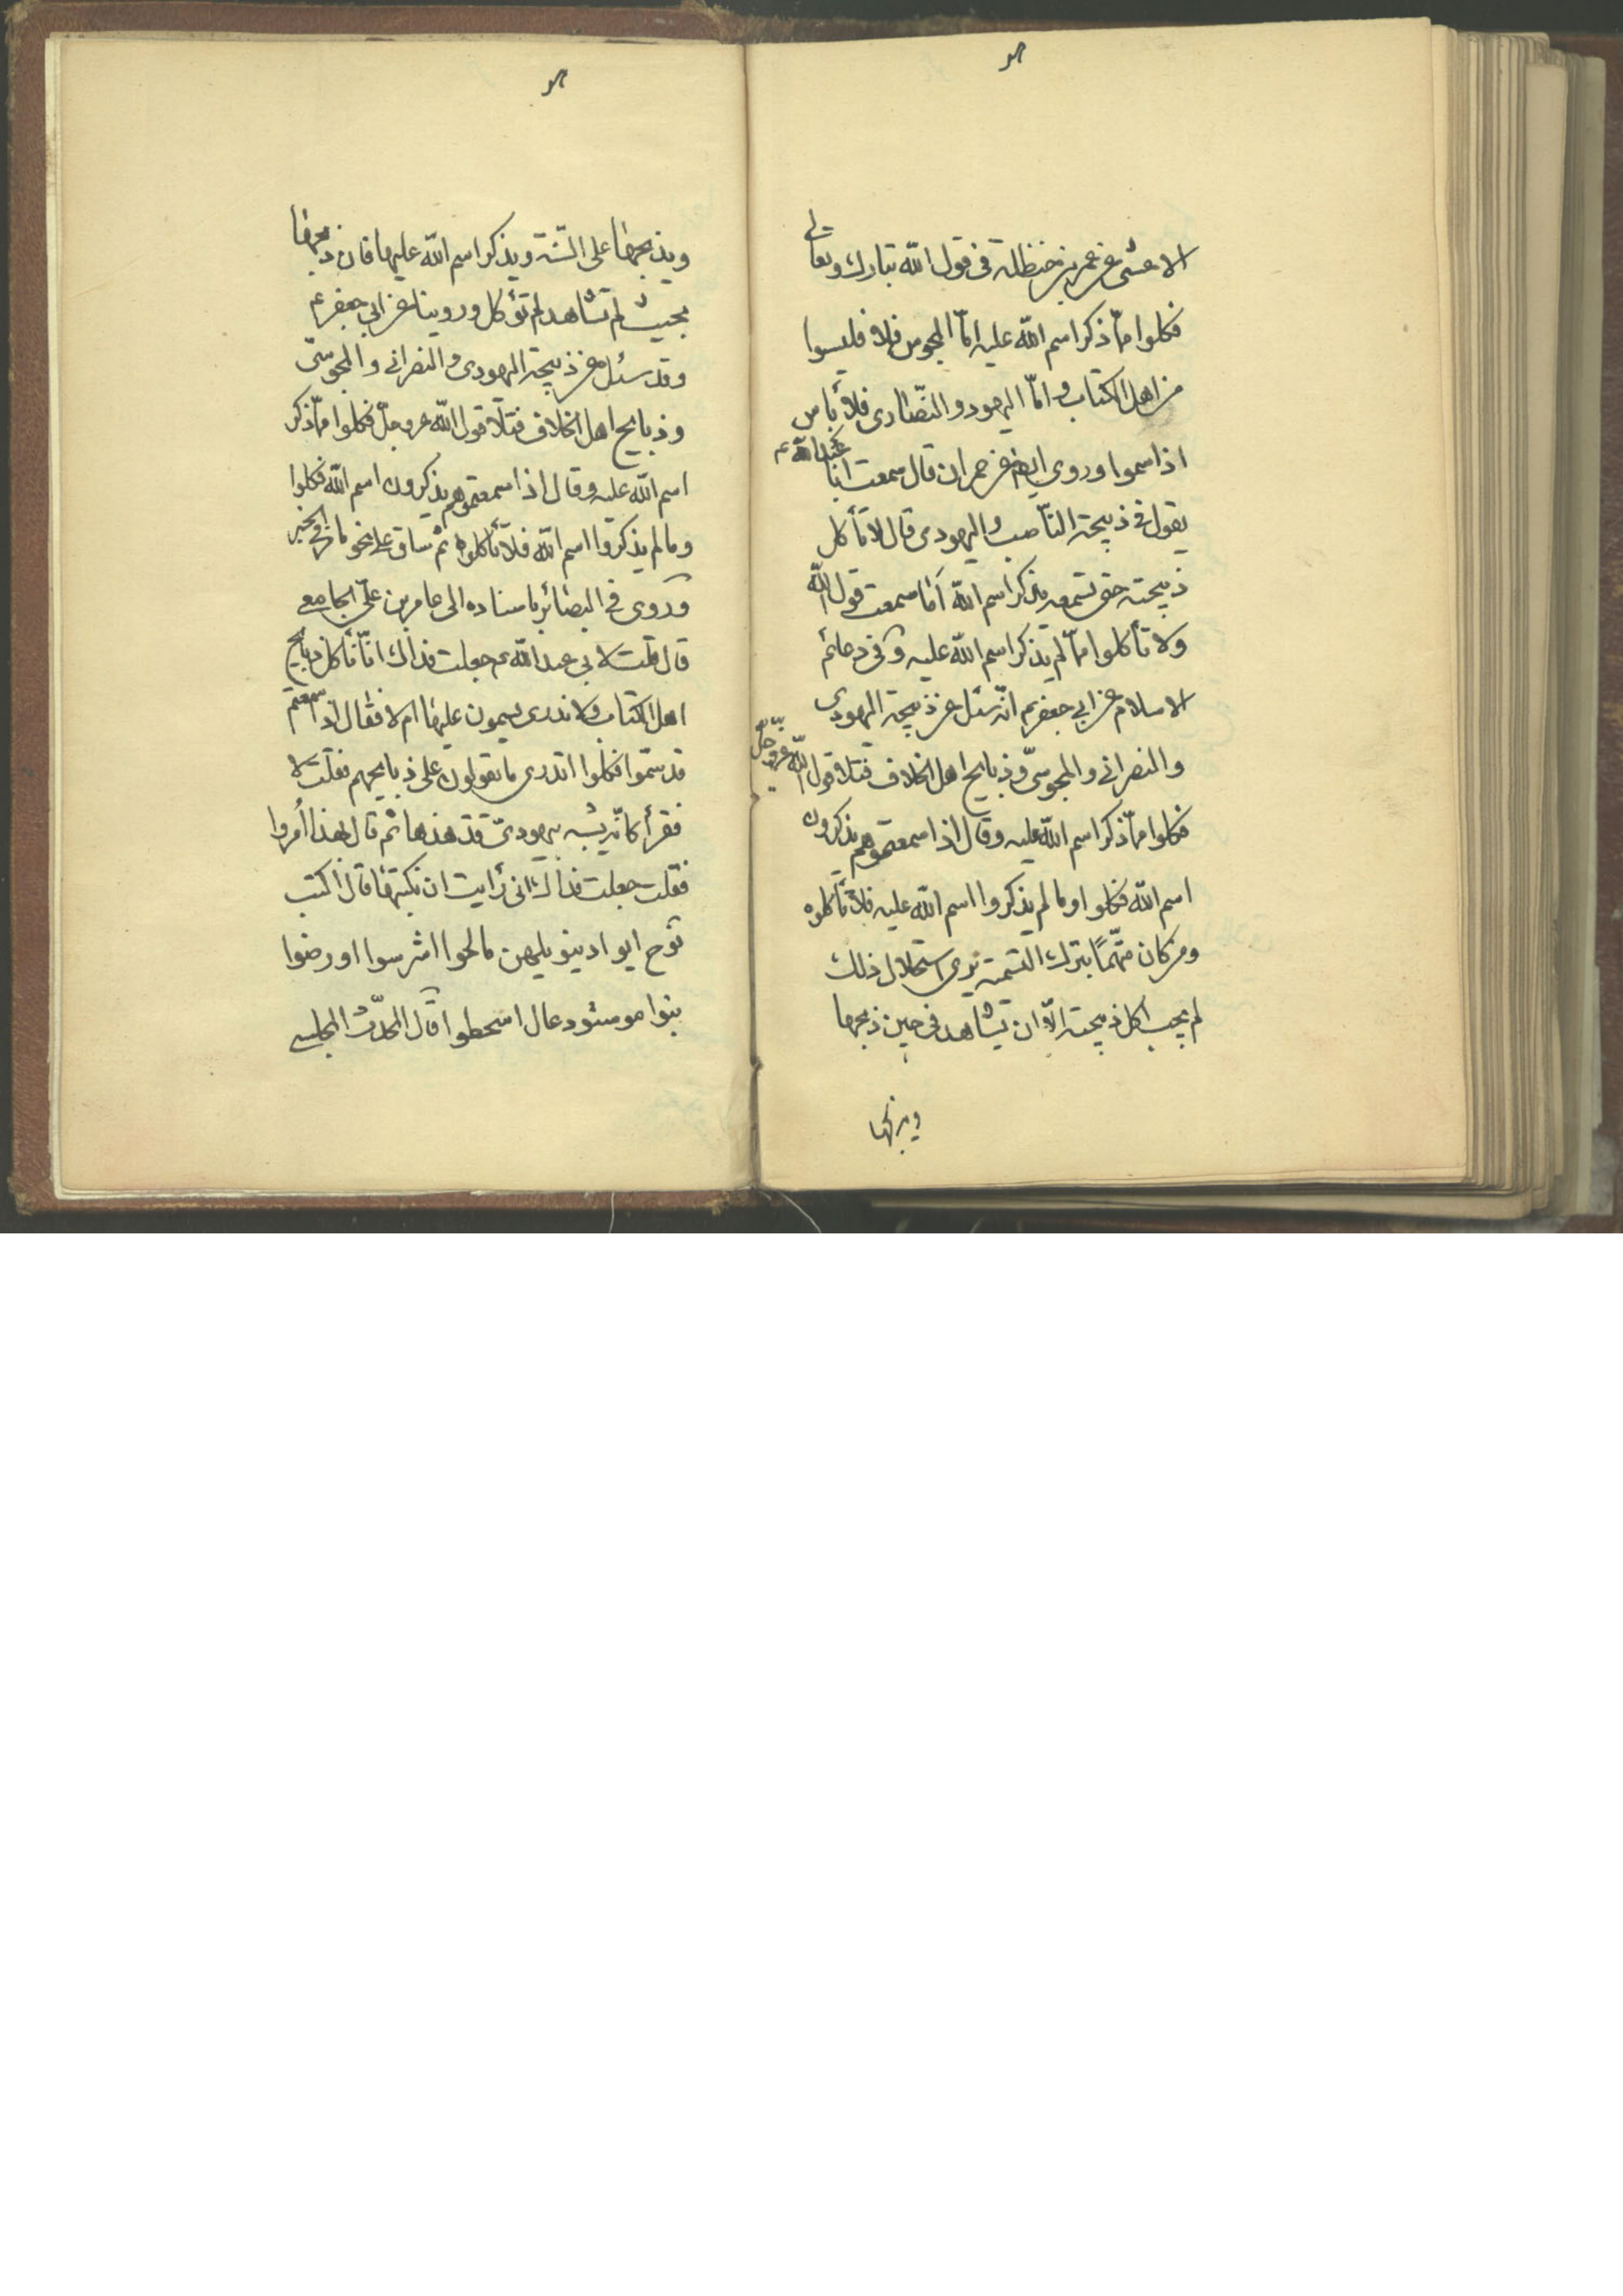 الاعشى عن عمر بن حنظلة فى قول الله تبارك وتعالى
فكلوا ممّا ذكر اسم الله عليه امّا المجوس فلا فليسوا
من اهل الكتاب وامّا اليهود والنصّارى فلا بأس
اذا سموا وروى ايضا عن حمران قال سمعت ابا عبد الله ع
يقول فى ذبيحة النّاصب واليهودى قال لا تأكل
ذبيحته حتى تسمعه يذكر اسم الله اَما سمعت قول الله
ولا تأكلوا ممّا لم يذكر اسم الله عليه وفى دعائم
الاسلام عن ابي جعفر ع انّه سئل عن ذبيحة اليهودى
والنصرانى والمجوسىّ وذبايح اهل الخلاف فتلا قول الله عزّ وجلّ
فكلوا ممّا ذكر اسم الله عليه وقال اذا سمعتموهم يذكرون
اسم الله فكلوا وما لم يذكروا اسم الله عليه فلا تأكلوه
ومن كان متّهمًا بترك التسمية يرى استحلال ذلك
لم يجب اكل ذبيحته الّا ان يشاهد فى حين ذبحها
ويذبحها على السّنة ويذكر اسم الله عليها فان ذبحها
بحيث لم تشاهد لم تؤكل وروينا عن ابي جعفر ع
وقد سئل عن ذبيحة اليهودى والنصرانى والمجوسىّ
وذبايح اهل الخلاف فتلا قول الله عزوجلّ فكلوا ممّا ذكر
اسم الله عليه وقال اذا سمعتموهم يذكرون اسم الله فكلوا
وما لم يذكروا اسم الله فلا تأكلوه ثم ساق على نحو ما فى الخبر
وروى فى البصائر باسناده الى عامر بن علىّ الجامعى
قال قلت لابي عبد الله ع جعلت فداك انّا نأكل ذبايح
اهل الكتاب ولا ندرى يسمون عليها ام لا فقال اذا سمعتم
قد سمّوا فكلوا اتدرى ما يقولون على ذبايحهم فقلت لا
فقرأ كانّه يشبه يهودىّ قد هذها ثم قال بهذا اُمروا
فقلت جعلت فداك ان رأيت ان نكتبها قال اكتب
نوح ايوا دينو يلهين مالحوا اشرسوا اورضوا
بنوا موسئود عال اسحطوا قال المحدّث المجلسى